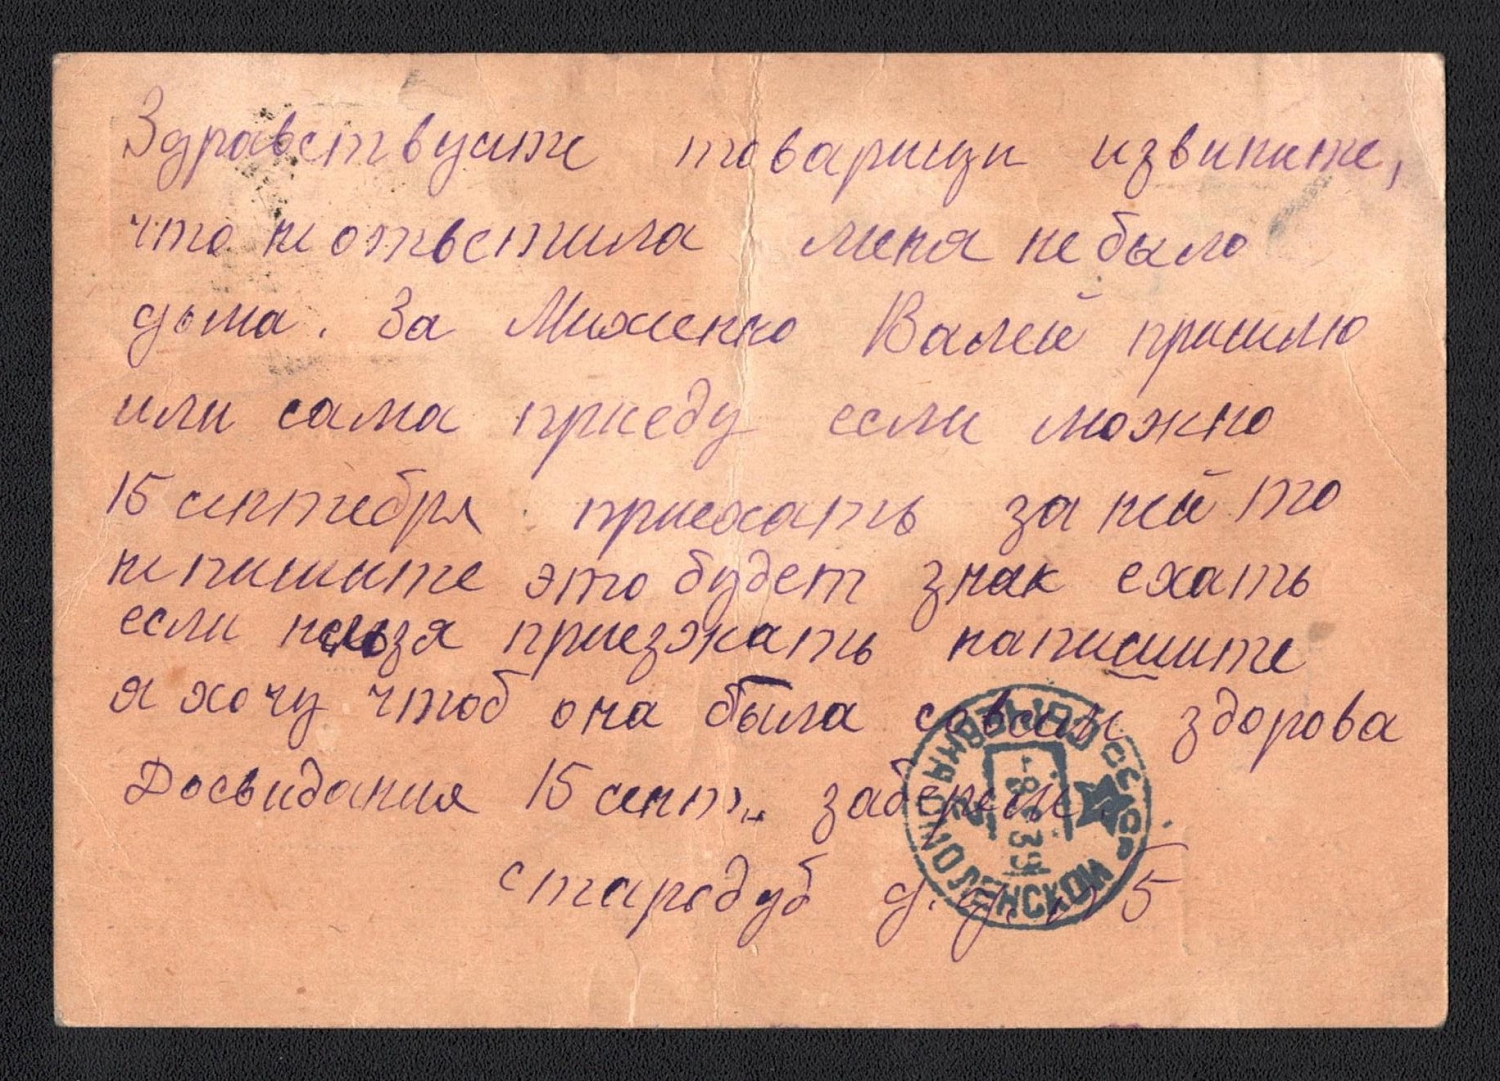 Здравствуите товарищи извините,
что не ответила меня не было
дома. За Миженко Валей пришлю
или сама приеду если можно
15 сентебря приехать за ней то
не пишите это будет знак ехать
если нельзя приезжать напишите
я хочу чтоб она была совсем здорова
Досвидания 15 сент. заберем.
стародуб д. я. №5
КРАСНЫЙ СМОЛЕНСКОЙ
СССР
-8 39